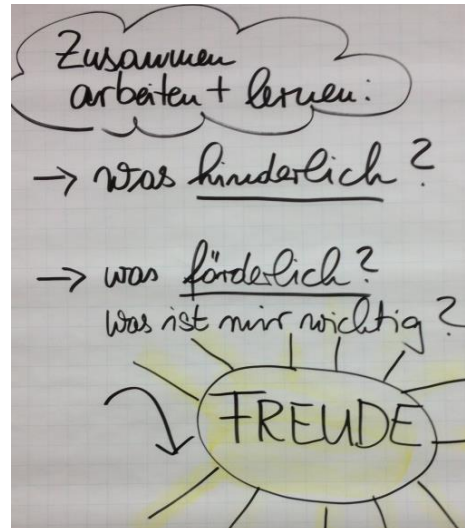 Zusammen
arbeiten + lernen:
→ was hinderlich?
→ was förderlich?
Was ist mir wichtig?
FREUDE